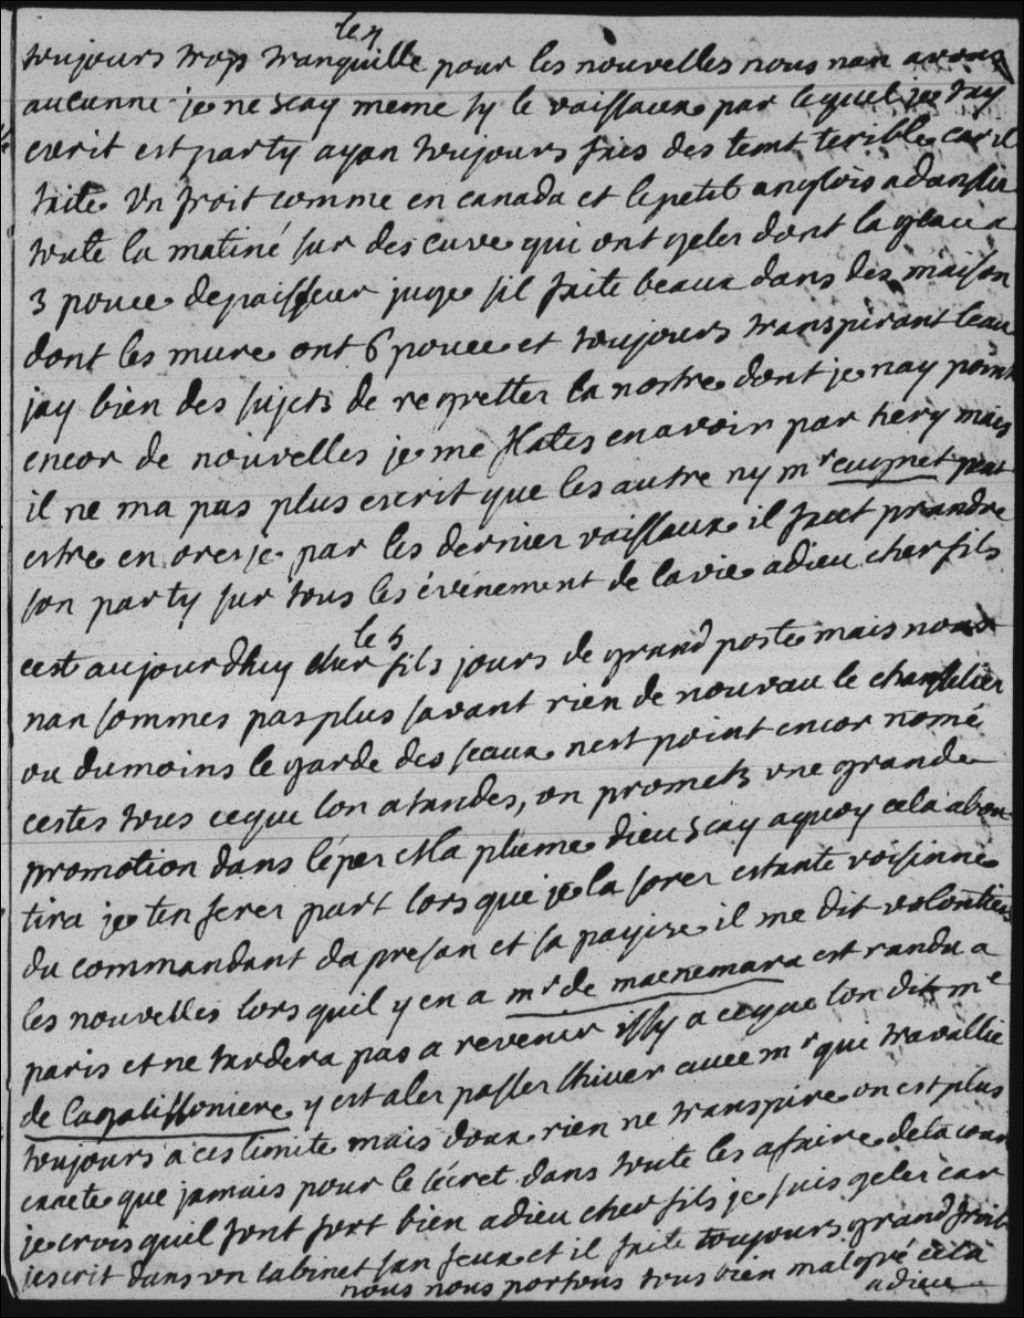 le 4
toujours trop tranquille pour les nouvelles nous nan avons
aucunne je ne scay meme sy le vaissaux par lequel je tay
escrit est party ayan toujours fais des temt terible car il
faite un froit comme en canada et le petit anglois a dansser
toute la matiné sur des cuve qui ont geler dont la glace a
3 pouce depaisseur juge sil faite beaux dans des maison
dont les mure ont 6 pouce et toujours transpirant leau
jay bien des sujets de regretter la nostre dont je nay point
encor de nouvelles je me flates en avoir par hery mais
il ne ma pas plus escrit que les autre ny mr cugnet peut
estre en oresje par les dernier vaissaux il faut prandre
son party sur tous les événement de la vie adieu cher fils
le 5
cest aujourdhuy cher fils jours de grand poste mais nous
nan sommes pas plus savant rien de nouveau le chansselier
ou dumoins le garde des seaux nest point encor nomé
cestes tous ceque lon atandes, on promets une grande
promotion dans lépée et la plume dieu scay a quoy cela abou
tira je ten ferer part lors que je la sorer estante voisinne
du commandant da presan et sa payise il me dit volontier
les nouvelles lors quil y en a mr de macnemara est randu a
paris et ne tardera pas a revenir issy a ceque lon dit me
de lagalissoniere y est aler passer lhiver avec mr qui travallie
toujours a ces limite mais donx rien ne transpire on est plus
exacte que jamais pour le cécret dans toute les afaire de la cour
je crois quil font fort bien adieu cher fils je suis geler car
jescrit dans un cabinet san feux et il faite toujours grand froit
nous nous portons tous bien malgré cela
adieu